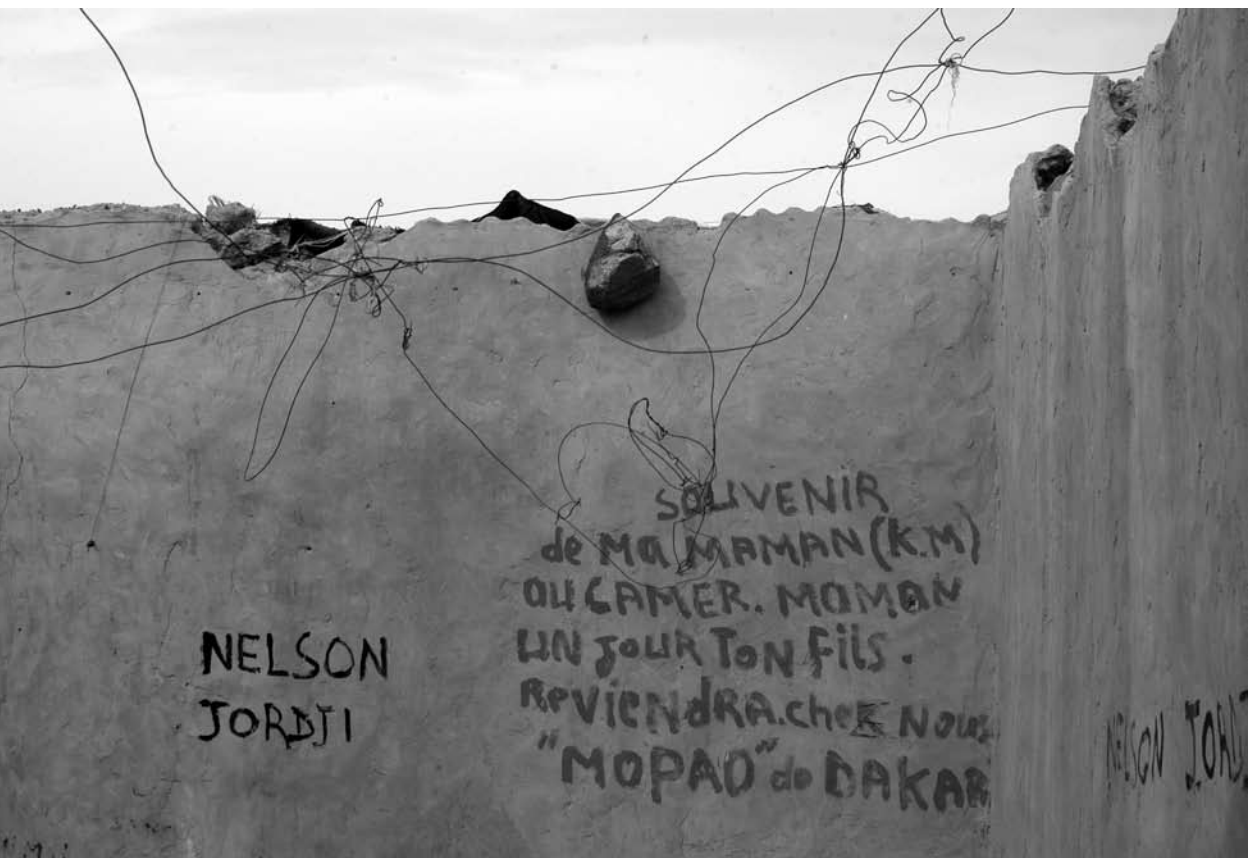 NELSON
JORDJI
SOUVENIR
de Ma MAMAN (K.M)
au CAMER. MAMAN
UN JOUR TON FilS.
ReVieNdRA.cheZ NOUS
"MOPAO" de DAKAR
NELSON JORDJI